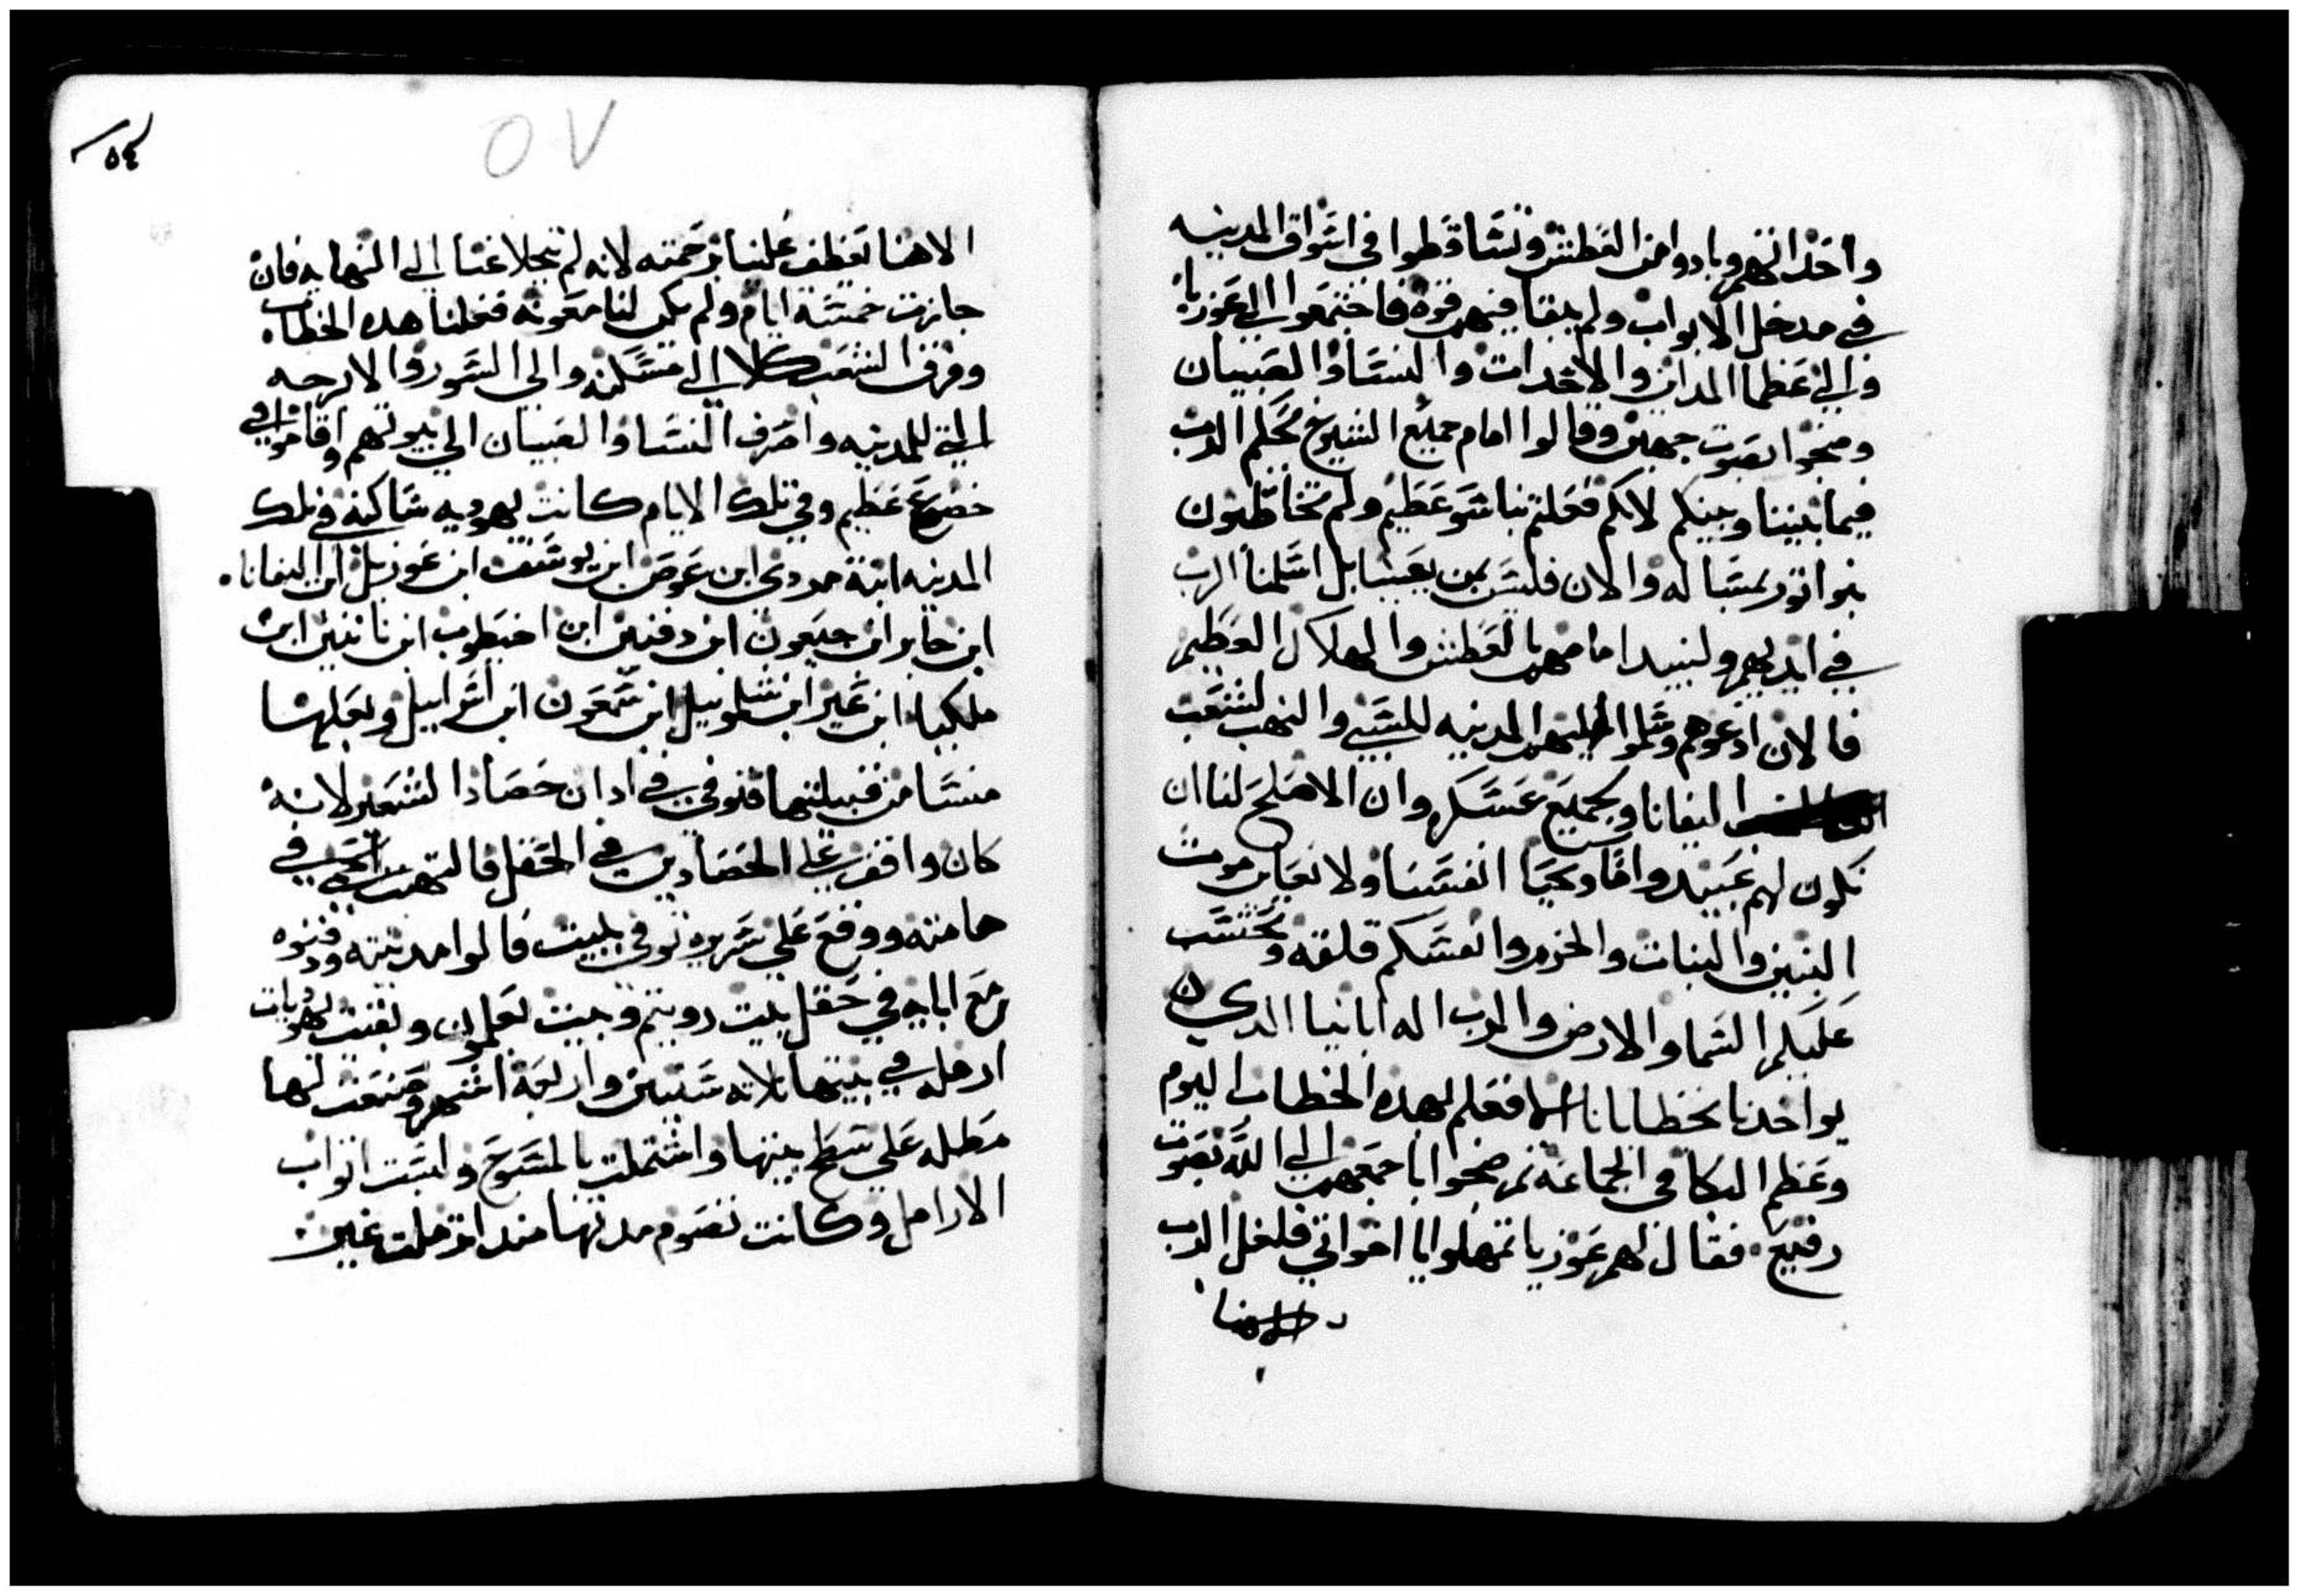 واحداثهم وبادوا من العطش وتساقطوا في اسواق المدينه
في مدخل الابواب ولم يبقا فيهم قوه فاجتمعوا الي عوزيا
والي عظما المدينه والاحداث والنسا والصبيان
وضجوا بصوت جهير وقالوا امام جميع الشيوخ يحكم الرب
فيما بيننا وبينكم لانكم فعلتم بنا سو عظيم ولم تخاطبون
بنو اتور بمساله والان فليس من يعيننا بل اسلمنا الرب
في ايديهم ولنبيد امامهم بالعطش والهلاك العظيم
فالان ادعوهم وسلموا اليهم المدينه للسبي والنهب لشعب
اليفانا وبجميع عسكره وان الاصلح لنا ان
نكون لهم عبيد واما وتحيا انفسنا ولا نعاين موت
البنين والبنات والحزم وانفسكم قلقه ونحتسب
عليكم السما والارض والرب اله ابائنا الدي
يواخدنا بخطايانا الا فعلم بهده الخطاب اليوم
وعظم البكا في الجماعه تم ضجوا باجمعهم الي الله بصوت
رفيع فقال لهم عوزيا تمهلوا يا اخواتي فلعل الرب
الاهنا
٥٤
٥٧
الاهنا تعطف علينا رحمته لانه لم يخلا عنا الي النهايه فان
جازت خمسة ايام ولم يكن لنا معونه فعلنا هده الخطاب
وفرق الشعب كلا الي مسكنه والي السور والابرجه
التي للمدينه واصرف النسا والصبيان الي بيوتهم واقاموا في
خضوع عظيم وفي تلك الايام كانت يهوديه ساكنه في تلك
المدينه ابنة مدودي ابن عوص ابن يوسف ابن عوزيل ابن اليفانا
ابن حابر ابن جيعون ابن دفنين ابن اخيطوب ابن ناتنين ابن
ملكيا ابن عير ابن شلونيل ابن سمعون ابن اسراييل وبعلها
منسا من قبيلتها فتوفي في ادان حصاد الشعير لانه
كان واقف علي الحصادين في الحقل فالتهبت الحمي في
هامته ووقع علي سريره توفي ببيت فالوا مدينته ودفنوه
مع ابايه في حقل بيت رويتم وبيت لعلمون وبقيت يهوديات
ارمله في بيتها تلاته سنين واربعة اشهر وصنعت لها
مطله علي سطح بيتها واشتملت بالمسوح ولبست اتواب
الارامل وكانت تصوم مدتها مند ارملت غير